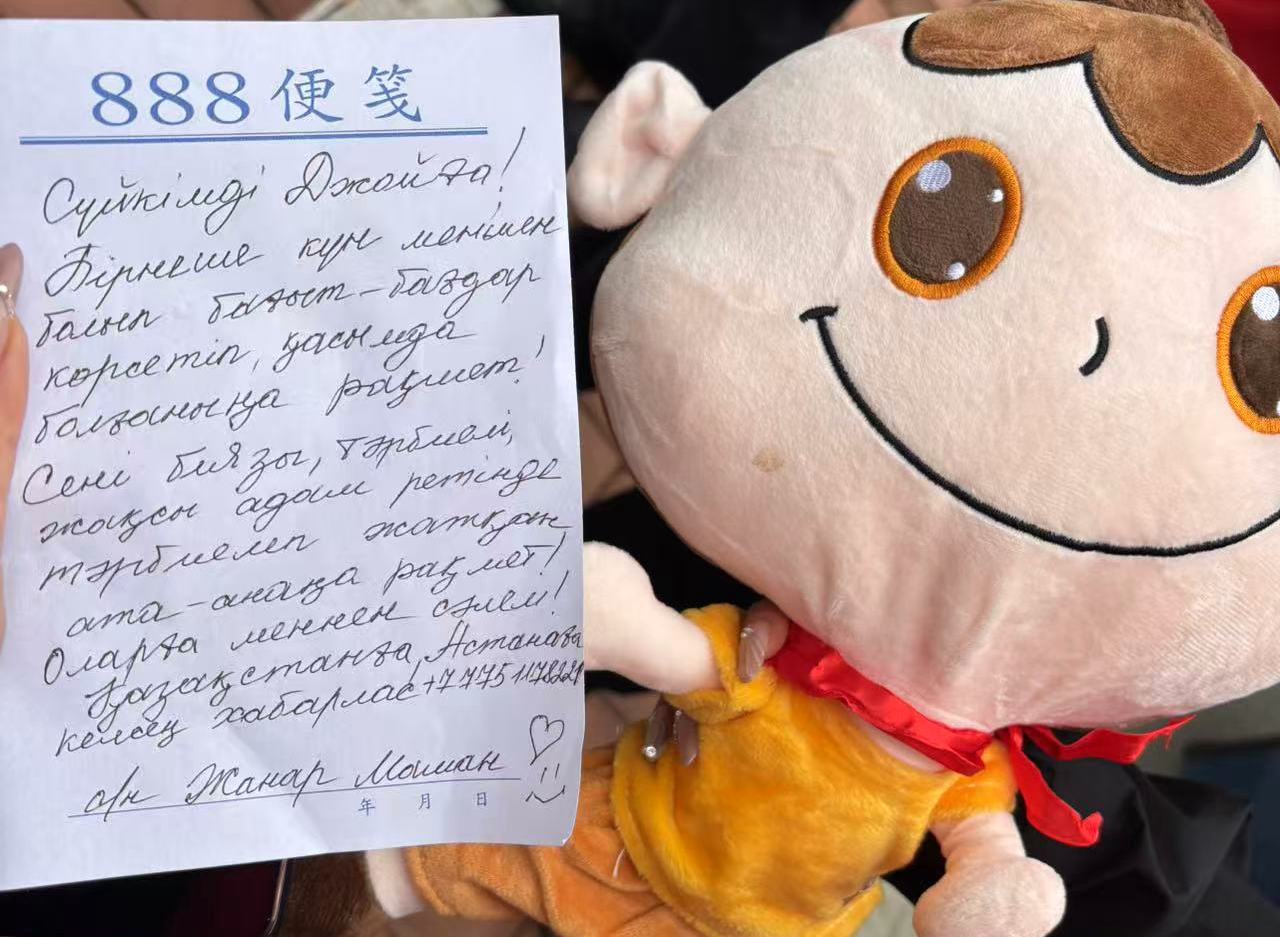 888便笺
Сүйкімді Джойға!
Бірнеше күн менімен
болып бағыт-бағдар
көрсетіп, қасымда
болғаныңа рақмет!
Сені биязы, тәрбиелі,
жақсы адам ретінде
тәрбиелеп жатқан
ата-анаңа рақмет!
Оларға меннен сәлем!
Қазақстанға, Астанаға
келсең хабарлас +77751178221
Жанар Маман
年 月 日